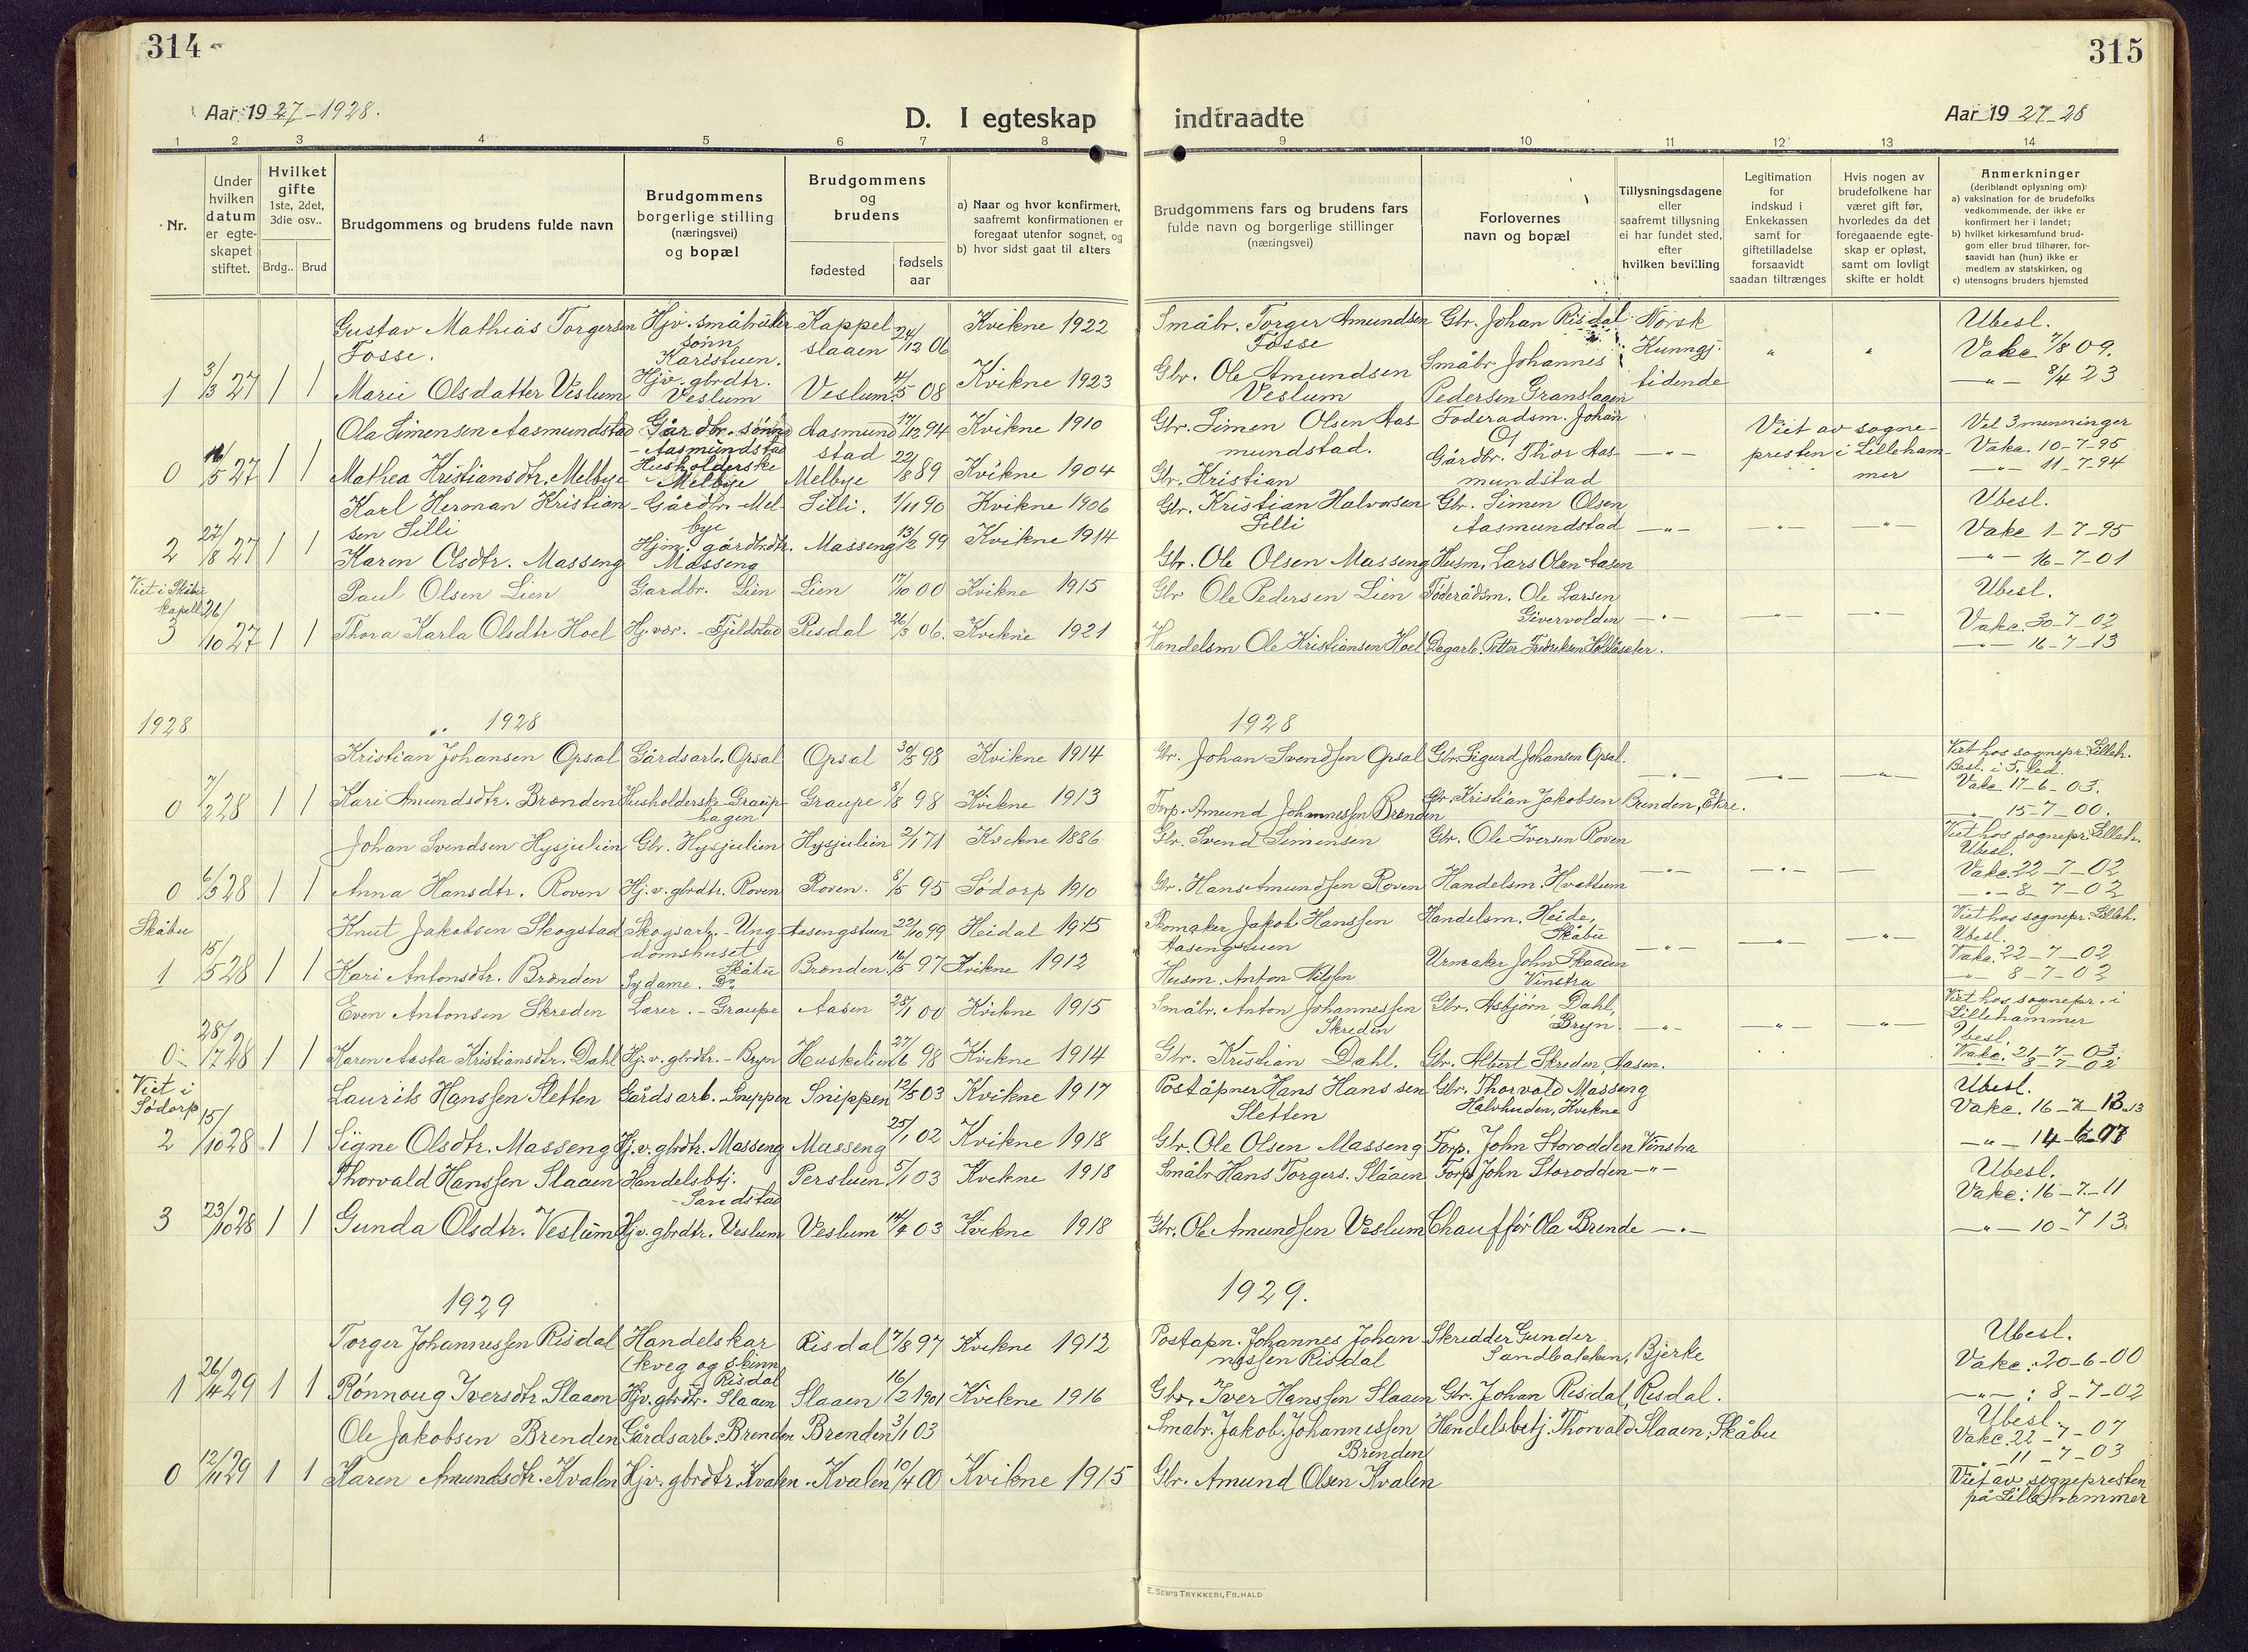 314
Aar 1927-1928.
D. I egteskap
1 2 3 4 5 6 7 8
Nr.
Under hvilken datum er egteskapet stiftet.
Hvilket gifte 1ste, 2det, 3die osv..
Brdg.. Brud
Brudgommens og brudens fulde navn
Brudgommens borgerlige stilling (næringsvei) og bopæl
Brudgommens og brudens
fødested
fødsels aar
a) Naar og hvor konfirmert, saafremt konfirmationen er foregaat utenfor sognet, og
b) hvor sidst gaat til alters
Gustav Mathias Torgersen Hjv. småbruker- Kappel 24/12 06 Kvikne 1922
Fosse. sønn Karistuen. slaaen
1 3/3 27 1 1 Marie Olsdatter Veslum Hjv. gbrdtr. Veslum Veslum 4/5 08 Kvikne 1923
Ola Simensen Aasmundstad Gårdbr. sønn - Aasmundstad Aasmund stad 17/12 94 Kvikne 1910
0 16/5 27 1 1 Mathea Kristiansdtr. Melbye Husholderske Melbye Melbye 22/8 89 Kvikne 1904
Karl Herman Kristian- Gårdbr. Mel- Lilli. 1/11 90 Kvikne 1906
sen Lilli bye
2 27/8 27 1 1 Karen Olsdtr. Masseng Hjm. gårdbrdtr. Masseng Masseng 13/2 99 Kvikne 1914
Viet i Skåbu kapell
Paul Olsen Lien Gardbr. Lien Lien 17/10 00 Kvikne 1915
3 26/10 27 1 1 Thora Karla Olsdtr Hoel Hj. vær. - Fjeldstad Risdal 26/3 06. Kvikne 1921
1928 1928
Kristian Johansen Opsal Gårdsarb. Opsal Opsal 30/5 98 Kvikne 1914
0 7/2 28 1 1 Kari Amundsdtr. Brænden Husholderske Graup- hagen Graupe 8/8 98 Kvikne 1913
Johan Svendsen Hysjulien Gbr. Hysjulien Hysjulien 2/1 71 Kvikne 1886
0 6/3 28 1 1 Anna Hansdtr. Roven Hj. v. gbrdtr. Roven Roven. 8/5 95 Sødorp 1910
Skåbu
Knut Jakobsen Skogstad Skogsarb. - Ung- domshuset Skåbu Aasengstuen 22/10 99 Heidal 1915
1 15/5 28 1 1 Kari Antonsdtr. Brænden Sydame. Do. Brænden. 16/5 97 Kvikne 1912
Even Antonsen Skreden Lærer. - Graupe Aasen 25/1 00 Kvikne 1915
0 28/7 28 1 1 Karen Aasta Kristiansdtr. Dahl Hj. v. gbrdtr. - Bryn Huskelien 27/6 98 Kvikne 1914
Viet i Sødorp
Laurits Hanssen Sletten Gårdsarb. Snippen Snippen 12/5 03 Kvikne 1917
2 15/10 28 1 1 Signe Olsdtr. Masseng Hj. v. gbrdtr. Masseng Masseng 25/1 02 Kvikne 1918
Thorvald Hanssen Slaaen Handelsbtj. - Sandstad Persluen 5/1 03 Kvikne 1918
3 23/10 28 1 1 Gunda Olsdtr. Veslum Hjv. gbrdtr. Veslum Veslum 14/4 03 Kvikne 1918
1929
Torger Johannessen Risdal Handelskar (kveg og skinn - Risdal Risdal 7/8 97 Kvikne 1912
1 26/4 29 1 1 Rønnoug Iversdtr. Slaaen Hjv. gbrdtr. Slaaen Slaaen 16/2 1901 Kvikne 1916
Ole Jakobsen Brenden Gårdsarb. Brenden Brenden 3/1 03
0 12/11 29 1 1 Karen Amundsdtr. Kvalen Hjv. gbrdtr. Kvalen. Kvalen 10/4 00 Kvikne 1915
315
indtraadte
Aar 1927-28
9 10 11 12 13 14
Brudgommens fars og brudens fars fulde navn og borgerlige stillinger (næringsvei)
Forlovernes navn og bopæl
Tillysningsdagene eller saafremt tillysning ei har fundet sted, efter hvilken bevilling
Legitimation for indskud i Enkekassen samt for giftetilladelse forsaavidt saadan tiltrænges
Hvis nogen av brudefolkene har været gift før, hvorledes da det foregaaende egteskap er opløst, samt om lovligt skifte er holdt
Anmerkninger
(deriblandt oplysning om):
a) vaksination for de brudefolks vedkommende, der ikke er konfirmert her i landet;
b) hvilket kirkesamfund brudgom eller brud tilhører, forsaavidt han (hun) ikke er medlem av statskirken, og
c) utensogns bruders hjemsted
Småbr. Torger Amundsen Fosse Gbr. Johan Risdal Norsk Kunngj. tidende " " Ubesl. Vake 7/8 09.
Gbr. Ole Amundsen Veslum Småbr Johannis Pedersen Granslaaen - " - 8/4 23
Gbr. Simen Olsen Aas- mundstad. Foderadsm. Johan Og Viet av sogne- presten i Lilleham- mer Vel 3 menninger Vake. 10-7-95
Gbr. Kristian Gårdbr. Thor Aas- mundstad - " - - " - 11-7-94
Gbr. Kristian Halvorsen Lilli Gbr. Simen Olsen Aasmundstad - " - - " - - " - Ubesl. Vake 1-7-95
Gbr. Ole Olsen Masseng Husm. Lars Olsen Aasen - " - 16-7-01
Gbr Ole Pedersen Lien Føderådsm. Ole Larsen Givervolden - " - - " - - " - Ubesl. Vake. 30-7-02
Handelsm Ole Kristiansen Hoel Dagarb. Petter Fredriksen - " - 16-7-13
1928
Gbr. Johan Svendsen Opsal Gbr. Sigurd Johansen Opsal. - " - - " - - " - Viet hos sognepr. Lilleh. Besl. i 5. led. Vake 17-6-03.
Forp. Amund Johannessen Brenden Gbr. Kristian Jakobsen Brenden, Ekre. - " - 15-7-00.
Gbr. Svend Simensen Gbr. Ole Iversen Roven - " - - " - - " - Viet hos sognepr. Lilleh. Ubesl. Vake. 22-7-02
Gbr. Hans Amundsen Roven Handelsm. Hvattum - " - 8-7-02
Skomaker Jakob Hanssen Aasengstuen Handelsm. Heide, Skåbu - " - - " - - " - Viet hos sognepr. Lilleh. Ubesl. Vake. 22-7-02
Husm. Anton Nilssen Urmaker John Skaaden Vinstra - " - 8-7-02
Småbr. Anton Johannessen Skreden Gbr. Asbjørn Dahl, Bryn - " - - " - - " - Viet hos sognepr. i Lillehammer Ubesl. Vake. 21-7-03.
Gbr. Kristian Dahl. Gbr. Albert Skreden, Aasen. - " - 8-7-02
Poståpner Hans Hanssen Sletten Gbr. Thorvald Masseng Halvhuden, Kvikne Ubesl. Vake. 16-7-13
Gbr. Ole Olsen Masseng Forp. John Storodden Vinstra - " - 14-6-07
Småbr Hans Torgers. Slåaen Forp John Storodden - " - Ubesl. Vake: 16-7-11
Gbr. Ole Amundsen Veslum Chauffør Ola Brende - " - - " - 10-7 13.
1929.
Postapn. Johannes Johan nessen Risdal Skredder Gunder Sandbakken, Bjerke Ubesl. Vake: 20-6-00
Gbr. Iver Hanssen Slaaen Gbr. Johan Risdal, Risdal. - " - : 8-7-02
Smabr. Jakob Johannessen Brenden Handelsbetj. Thorvald Slaaen, Skåbu Ubesl. Vake. 22-7-07
Gbr. Amund Olsen Kvalen " - 11-7-03 Viet av sognepresten på Lillehammer
E. SEM'S TRYKKERI, FR.HALD